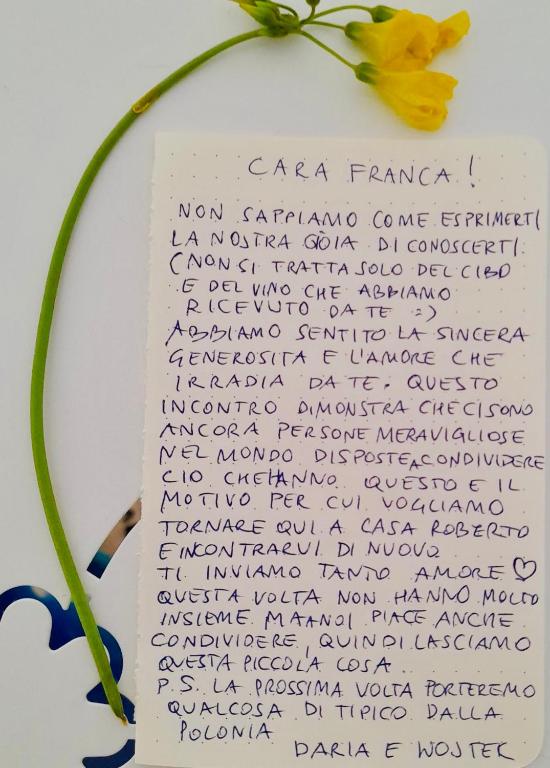 CARA FRANCA!
NON SAPPIAMO COME ESPRIMERTI
LA NOSTRA GIOIA DI CONOSCERTI.
(NON SI TRATTA SOLO DEL CIBO
E DEL VINO CHE ABBIAMO
RICEVUTO DA TE :)
ABBIAMO SENTITO LA SINCERA
GENEROSITA E L'AMORE CHE
IRRADIA DA TE. QUESTO
INCONTRO DIMONSTRA CHE CI SONO
ANCORA PERSONE MERAVIGLIOSE
NEL MONDO DISPOSTE A CONDIVIDERE
CIO CHE HANNO. QUESTO E IL
MOTIVO PER CUI VOGLIAMO
TORNARE QUI A CASA ROBERTO
E INCONTRARVI DI NUOVO
TI INVIAMO TANTO AMORE ♡
QUESTA VOLTA NON HANNO MOLTO
INSIEME. MA A NOI PIACE ANCHE
CONDIVIDERE, QUINDI LASCIAMO
QUESTA PICCOLA COSA..
P.S. LA PROSSIMA VOLTA PORTEREMO
QUALCOSA DI TIPICO DALLA
POLONIA
DARIA E WOJTEK